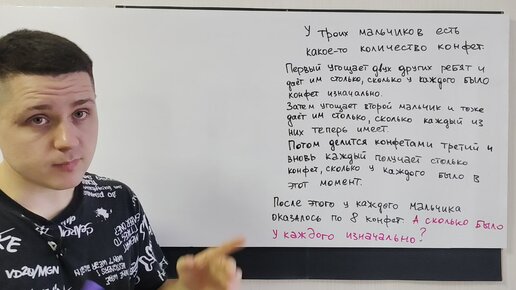 У троих мальчиков есть
какое-то количество конфет.
Первый угощает двух других ребят и
даёт им столько, сколько у каждого было
конфет изначально.
Затем угощает второй мальчик и тоже
даёт им столько, сколько каждый из
них теперь имеет.
Потом делится конфетами третий и
вновь каждый получает столько
конфет, сколько у каждого было в
этот момент.
После этого у каждого мальчика
оказалось по 8 конфет. А сколько было
у каждого изначально?
VD20/MGN